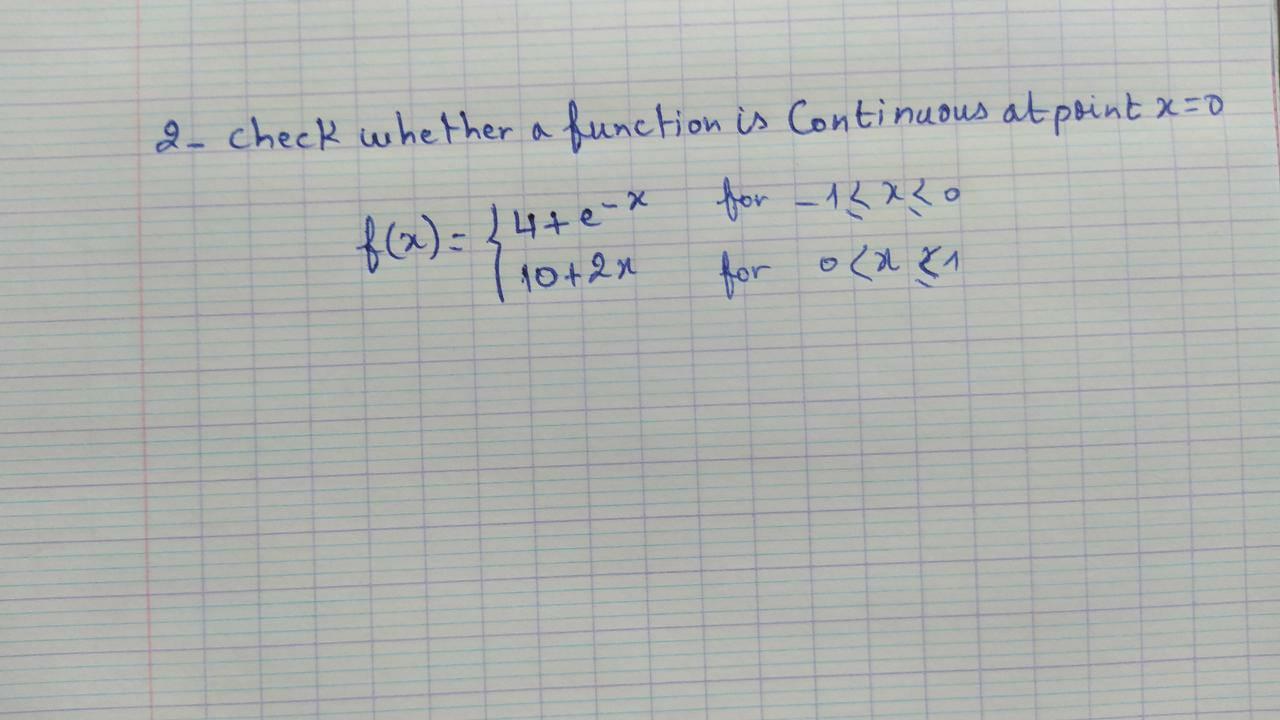 2- check whether a function is Continuous at point x=0
f(x) = { 4 + e^-x for -1 ≤ x ≤ 0
10 + 2x for 0 < x ≤ 1